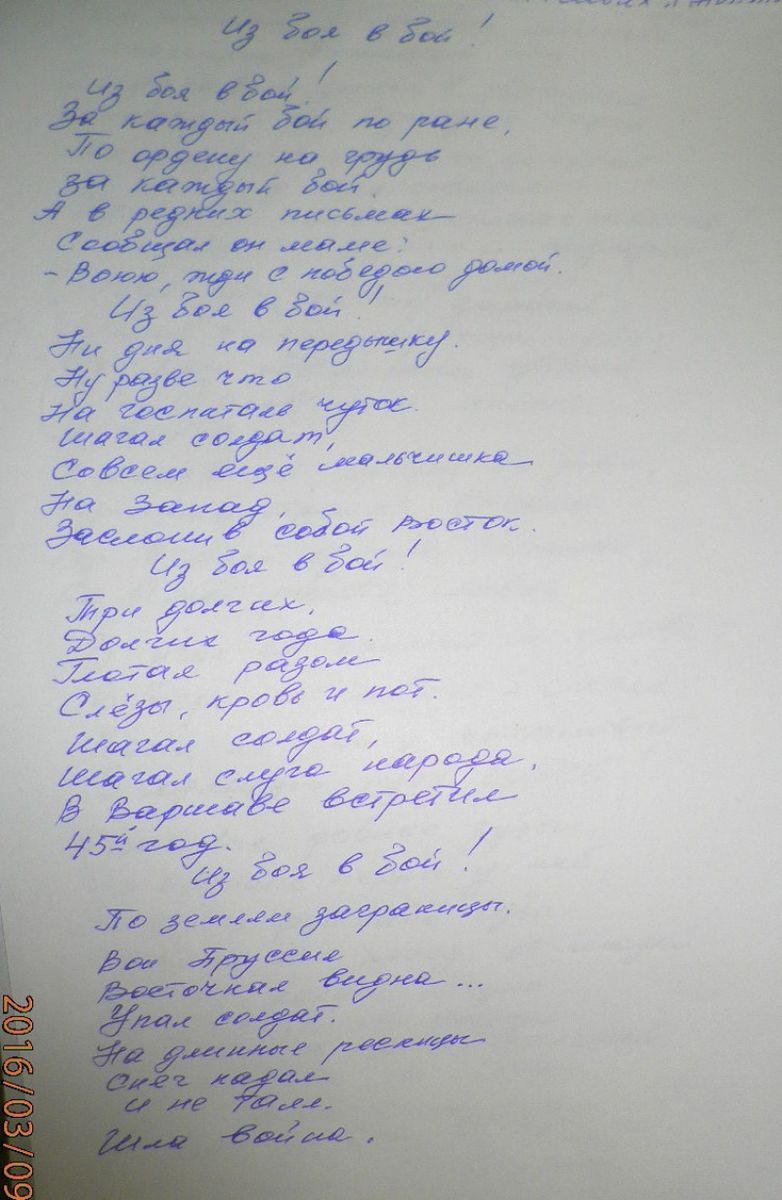 Из боя в бой!
Из боя в бой!
За каждый бой по ране,
По ордену на грудь
за каждый бой.
А в редких письмах
Сообщал он маме:
- Воюю, жди с победою домой.
Из боя в бой!
Ни дня на передышку.
Ну разве что
На госпиталь чуток.
Шагал солдат,
Совсем ещё мальчишка
На Запад,
Заслонив собой Восток.
Из боя в бой!
Три долгих,
Долгих года.
Глотая разом
Слёзы, кровь и пот.
Шагал солдат,
Шагал слуга народа,
В Варшаве встретил
45й год.
Из боя в бой!
По землям заграницы.
Вон Пруссия
Восточная видна...
Упал солдат.
На длинные ресницы
Снег падал
и не таял.
Шла война.
2016/03/09